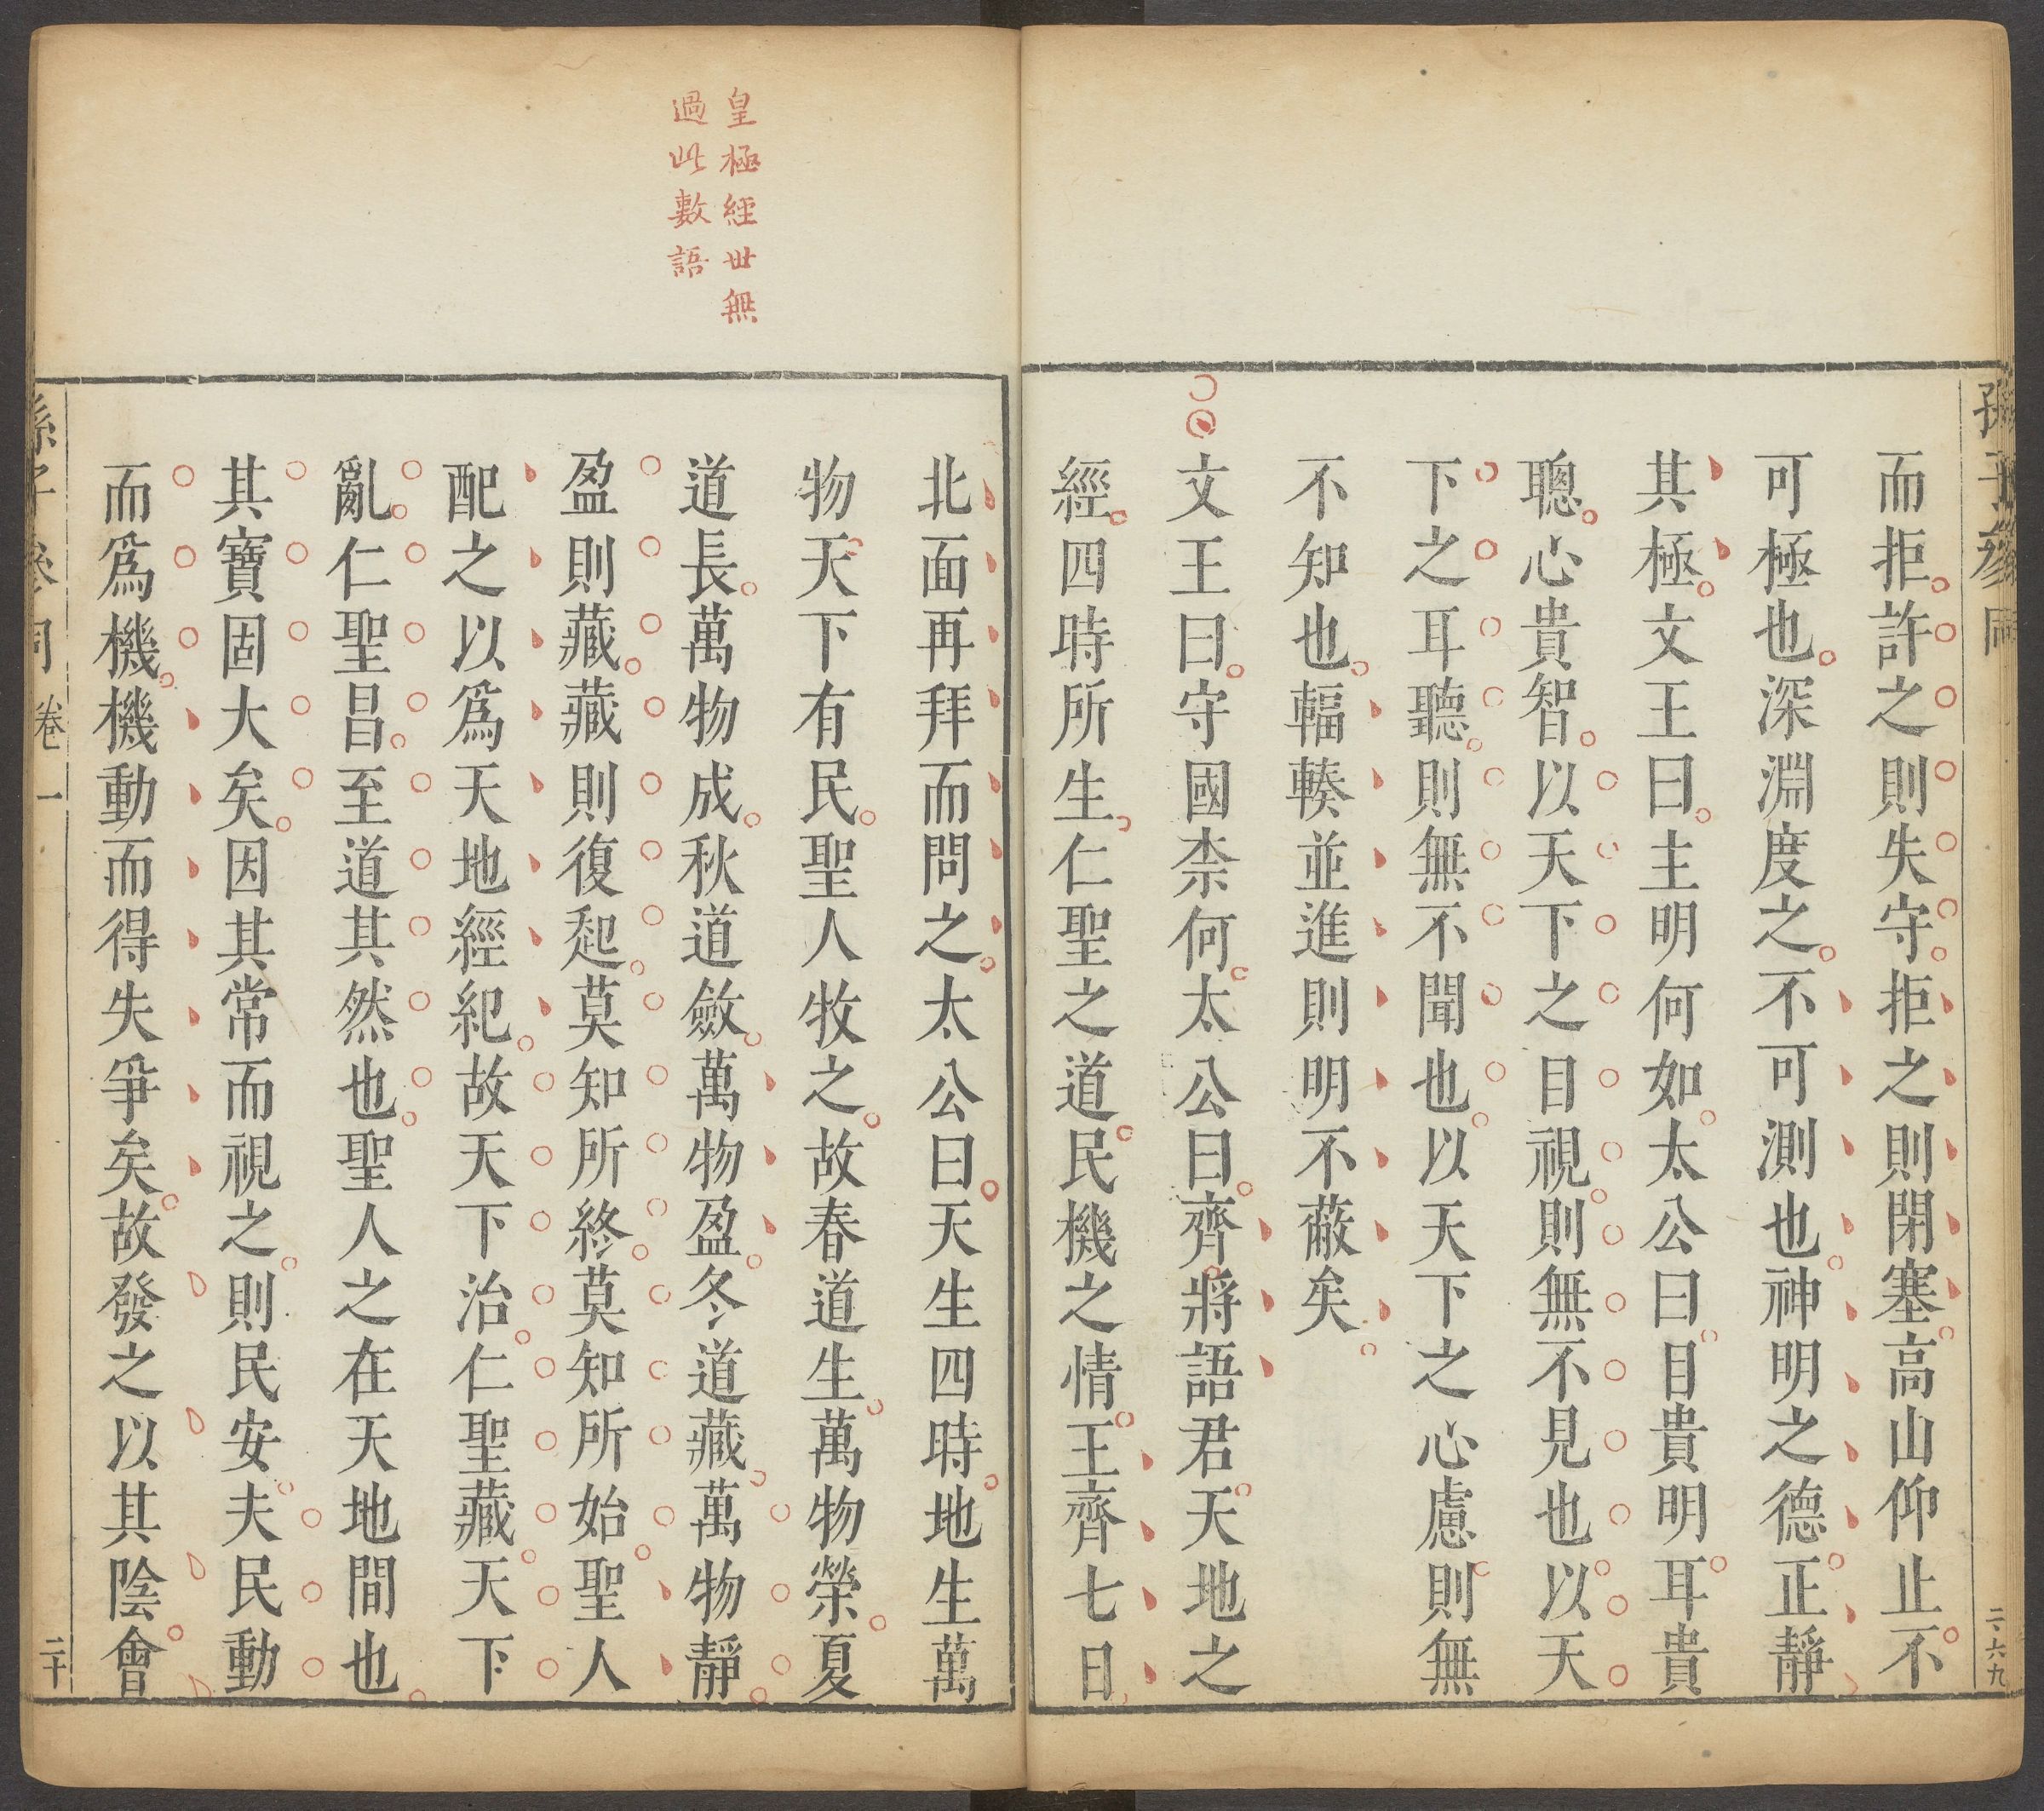 而拒許之則失守拒之則閉塞高山仰止不
可極也深淵度之不可測也神明之德正靜
其極文王曰主明何如太公曰目貴明耳貴
聰心貴智以天下之目視則無不見也以天
下之耳聽則無不聞也以天下之心慮則無
不知也輻輳並進則明不蔽矣
文王曰守國柰何太公曰齊將語君天地之
經四時所生仁聖之道民機之情王齊七日
皇極經世無
過此數語
北面再拜而問之太公曰天生四時地生萬
物天下有民聖人牧之故春道生萬物榮夏
道長萬物成秋道斂萬物盈冬道藏萬物靜
盈則藏藏則復起莫知所終莫知所始聖人
配之以為天地經紀故天下治仁聖藏天下
亂仁聖昌至道其然也聖人之在天地間也
其寶固大矣因其常而視之則民安夫民動
而爲機機動而得失爭矣故發之以其陰會
孫子參同 卷一 二十